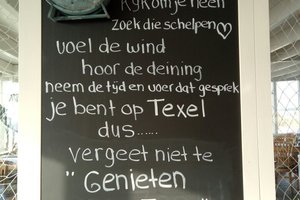 kijk om je heen
zoek die schelpen
voel de wind
hoor de deining
neem de tijd en voer dat gesprek
je bent op Texel
dus......
vergeet niet te
" Genieten